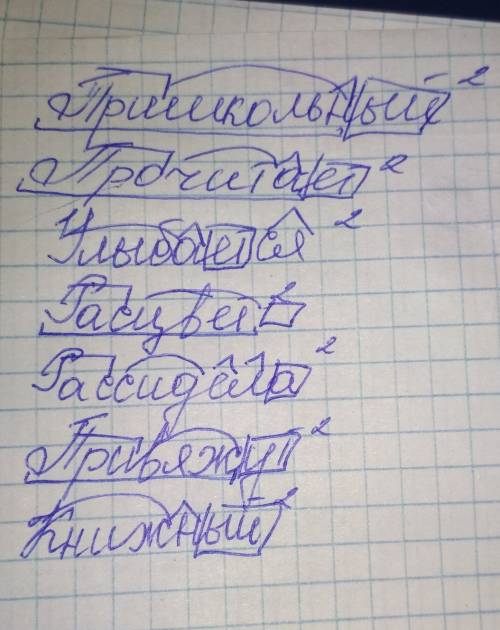 Пришкольный²
Прочитает²
Улыбается²
Расцвет²
Рассидела²
Привяжут²
Книжный²